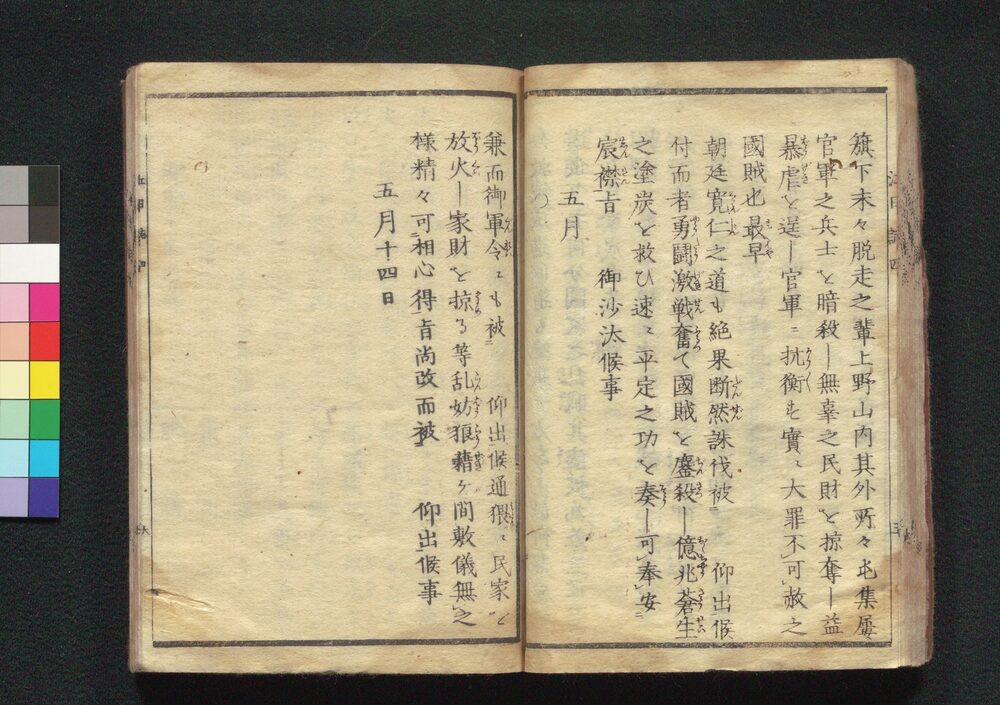 簱下末々脱走之輩上野山内其外所々屯集屢
官軍之兵士を暗殺し無辜之民財を掠奪し益
暴虐を逞し官軍ニ抗衡せ實ニ大罪不可赦之
國賊也最早
朝廷寛仁之道も絶果断然誅伐被　仰出候
付而者勇鬪激戦奮て國賊を鏖殺し億兆蒼生
之塗炭を救ひ速ニ平定之功を奏し可奉安
宸襟旨　御沙汰候事
五月
兼而御軍令ニも被　仰出候通猥ニ民家を
放火し家財を掠る等乱妨狼藉ヶ間敷儀無之
様精々可相心得旨尚改而被　仰出候事
五月十四日